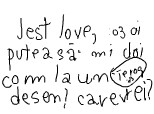 Jest love, :03 oi
putea să mi doi
com la un
desen! care vrei?